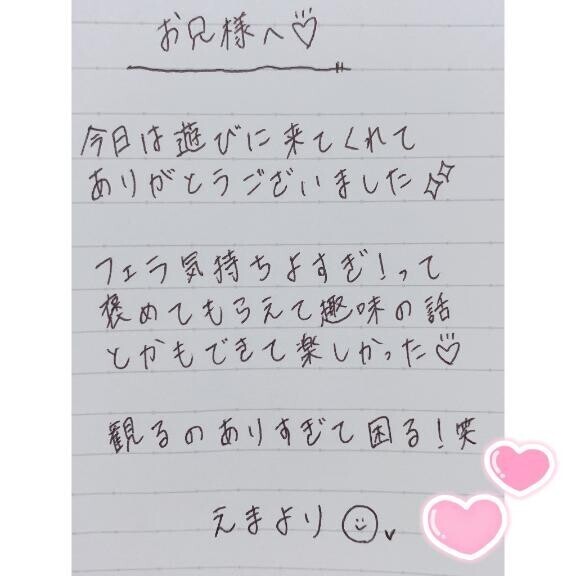 お兄様へ♡
今日は遊びに来てくれて
ありがとうございました✨
フェラ気持ちよすぎ!って
褒めてもらえて趣味の話
とかもできて楽しかった♡
観るのありすぎて困る!笑
えまより